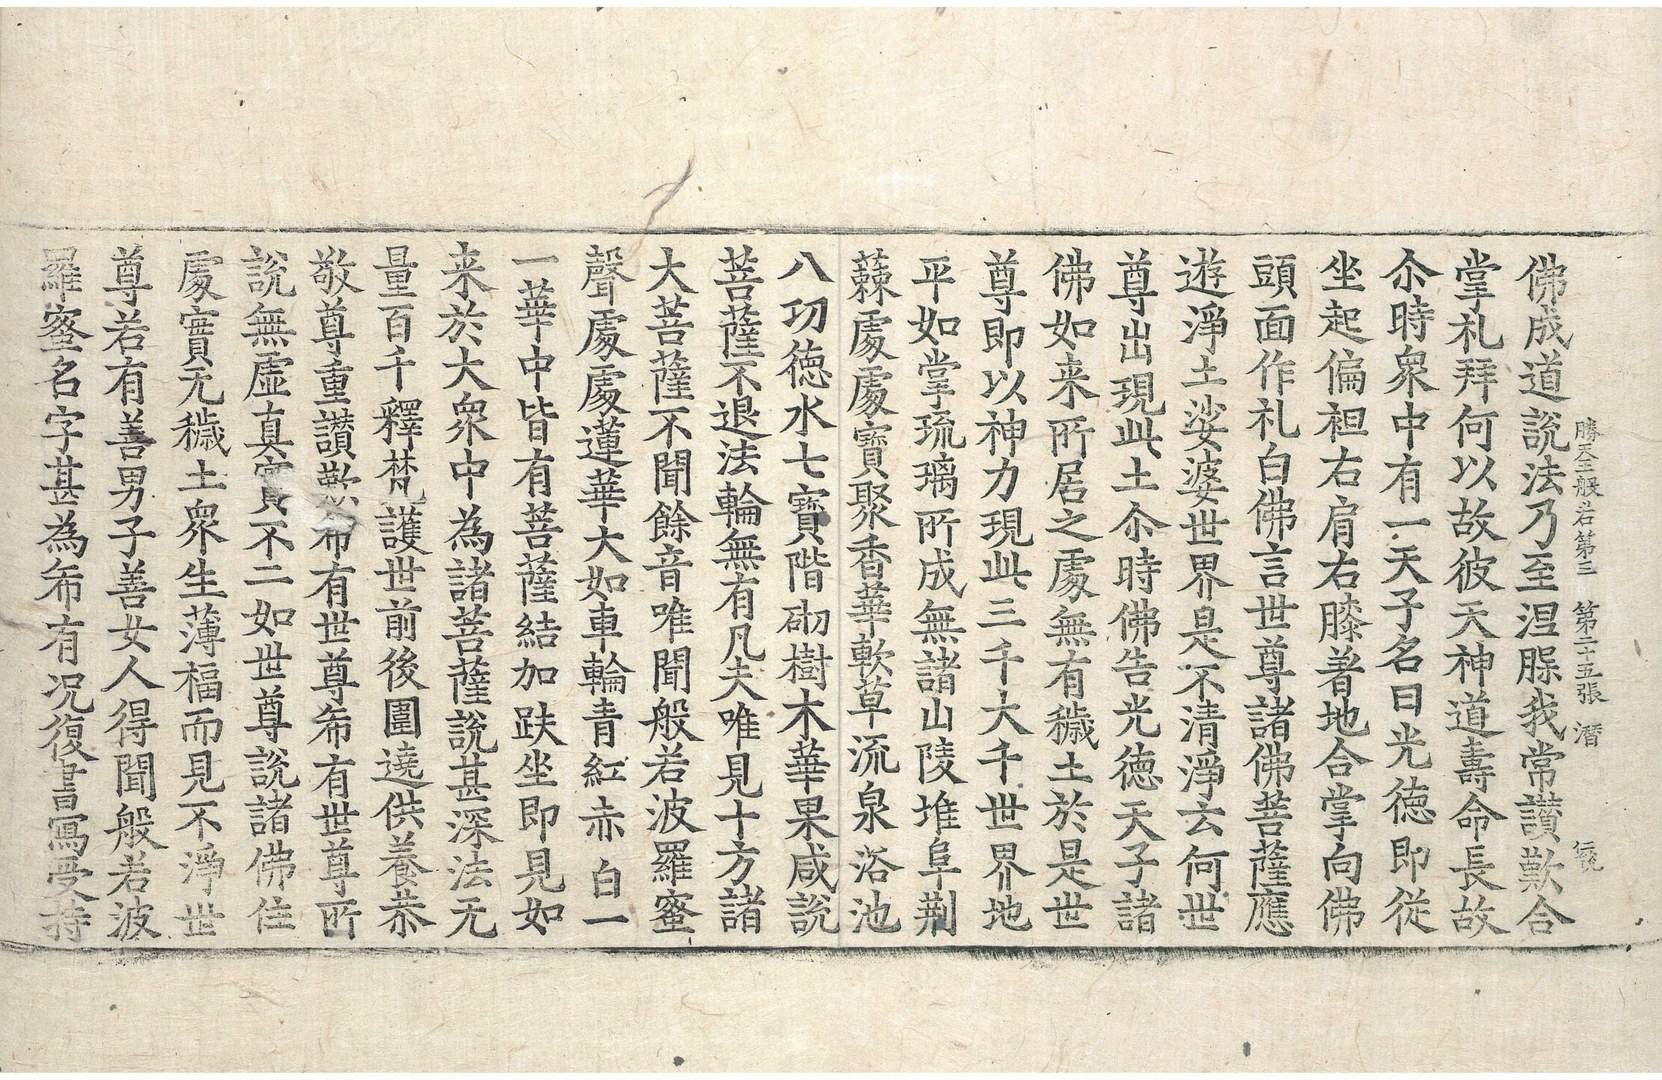 勝天王般若第三　第二十五張　潛
佛成道說法乃至涅縣我常讃歎合
掌礼拜何以故彼天神道壽命長故
尒時衆中有一天子名曰光徳即從
坐起偏袒右肩右膝著地合掌向佛
頭面作礼白佛言世尊諸佛菩薩應
遊淨土娑婆世界是不清淨云何世
尊出現此土尒時佛告光徳天子諸
佛如来所居之處無有穢土於是世
尊即以神力現此三千大千世界地
平如掌琉璃所成無諸山陵堆阜荆
蕀處處寶聚香華軟草流泉浴池
八功徳水七寶階砌樹木華果咸說
菩薩不退法輪無有凡夫唯見十方諸
大菩薩不聞餘音唯聞般若波羅蜜
聲處處蓮華大如車輪青紅赤白一
一華中皆有菩薩結加趺坐即見如
来於大衆中為諸菩薩說甚深法无
量百千釋梵護世前後圍遶供養恭
敬尊重讃歎希有世尊希有世尊所
說無虛真實不二如世尊說諸佛住
處實无穢土衆生薄福而見不淨世
尊若有善男子善女人得聞般若波
羅蜜名字甚為希有况復書寫受持